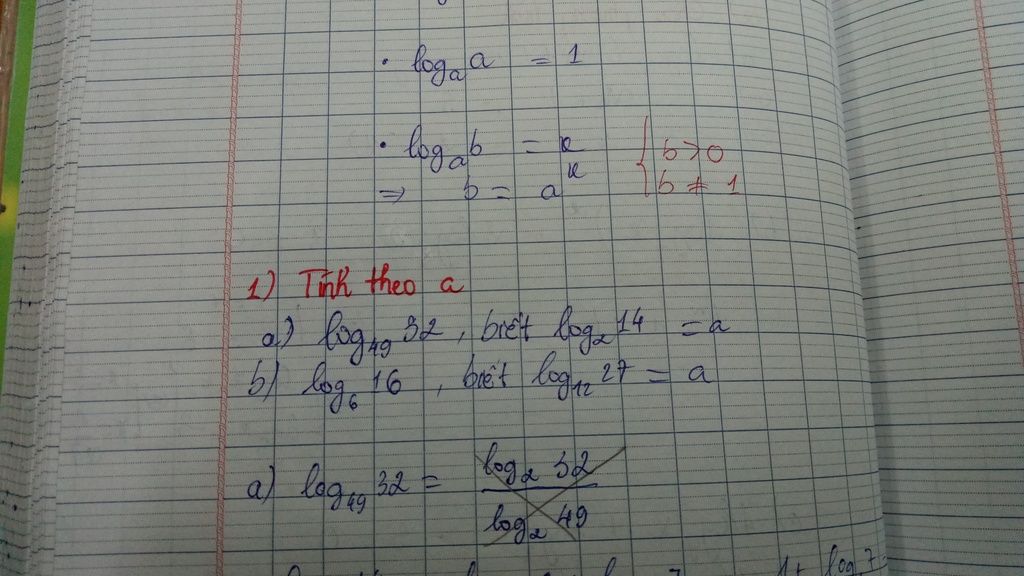 • logₐ a = 1
• logₐ b = κ { b > 0
⇒ b = a^κ b ≠ 1
1) Tính theo a
a) log₄₉ 32 , biết log₂ 14 = a
b) log₆ 16 , biết log₁₂ 27 = a
a) log₄₉ 32 = log₂ 32
log₂ 49
1 + log 7